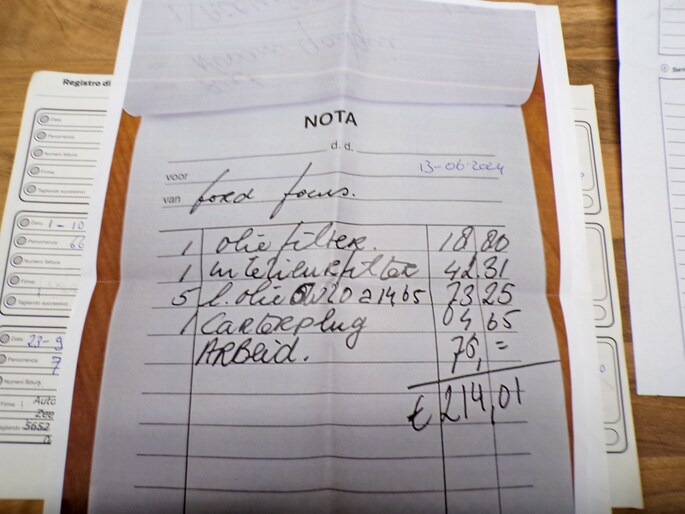 Registro di
Data
Percorrenza
Numero fattura
Firma
Tagliando successivo
Data 1-10
Percorrenza 66
Numero fattura
Firma
Tagliando successivo
Data 23-9
Percorrenza 7
Numero fattura
Firma Auto
Zee
Tagliando 5652
NOTA
d.d. 13-06-2024
voor
van ford focus.
1 oliefilter. 18 80
1 interieurfilter 42 31
5 l. olie 5w20 a 14 65 73 25
1 Carterplug 04 65
ARBeid. 75,=
€ 214,01